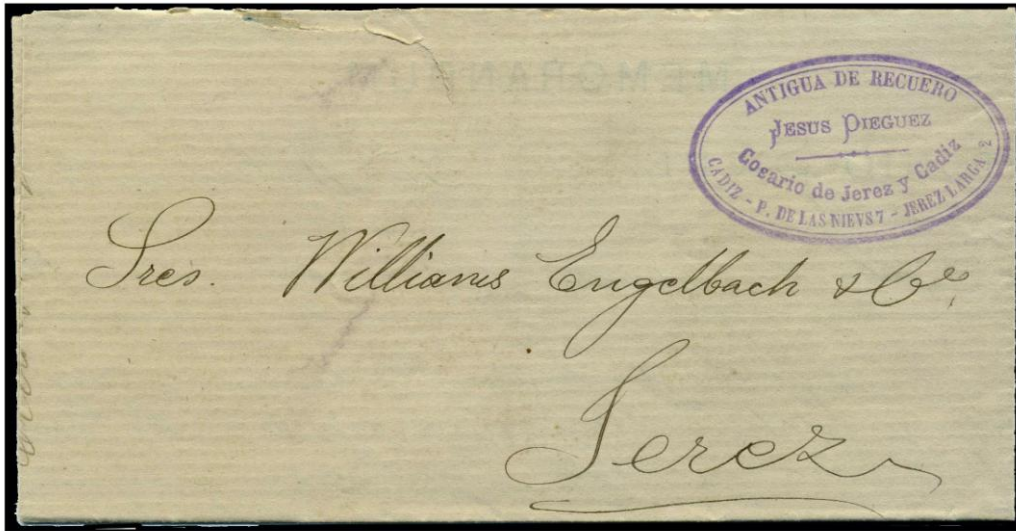 MEMORANDUM
ANTIGUA DE RECUERO
JESUS DIEGUEZ
Cosario de Jerez y Cadiz
CADIZ - P. DE LAS NIEVS 7 - JEREZ LARGA 2
Sres. Williams Engelbach & Ce.
Jerez